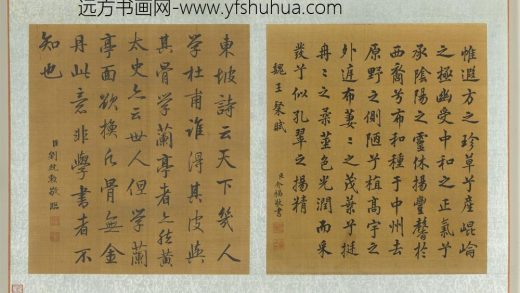 远方书画网-www.yfshuhua.com
惟遐方之珍草兮產崐崘
之極幽受中和之正氣兮
承陰陽之靈休揚豐馨於
西裔兮布和種于中州去
原野之側陋兮植高宇之
外庭布萋〻之茂葉兮挺
冉〻之柔莖色光潤而采
發兮似孔翠之揚精
魏王粲賦
臣介福敬書
東坡詩云天下幾人
學杜甫誰得其皮與
其骨學蘭亭者亦然黃
太史亦云世人但學蘭
亭面欲換凡骨無金
丹此意非學書者不
知也
臣劉統勳敬臨